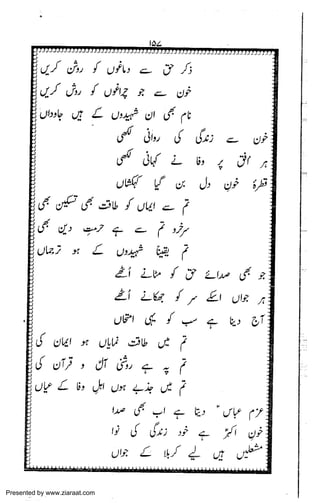 ۱۵۷
ذکر حق سے دماغوں کو روشن کریں
خون سے جو چراغوں کو روشن کریں
نام بھی ان شہیدوں کے ہیں جاوداں
خون سے زندگی کی روانی لکھی
ہر افق پر وفا نے کہانی لکھی
قطرۂ خونِ دل بن گیا کہکشاں
تم سے ایماں کو طاقت بھی تسکین بھی
سرخرو تم سے ہے حرمتِ دین بھی
تم یقیناً شہیدوں کے ہو ترجماں
جو بھی صدائے حق کو مٹانے اُٹھے
ہر جواں اسکے سر کو جھکانے اُٹھے
آج دینا ہے سب کو یہی امتحاں
تم میں طاقت نمایاں ہو ایمان کی
تم پہ ہے روشنی آلؑ و قرآن کی
تم میں جذبے ہوں اہلِ وفا کے عیاں
عزم عباسؑ دیتا ہے اب بھی صدا
خونِ اکبرؑ ہے خود زندگی کی نوا
مشعلیں ہیں لیے کربلا کے جواں
Presented by www.ziaraat.com